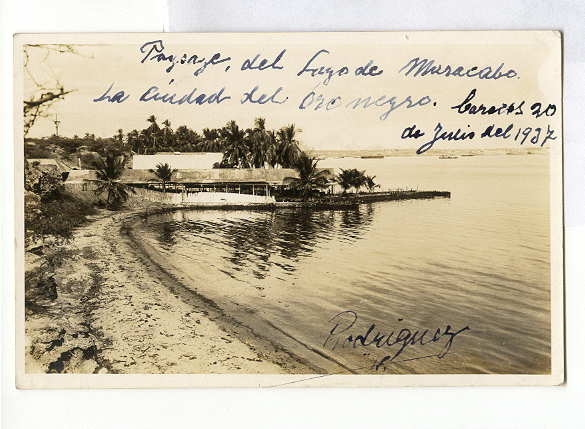 Paysage, del Lago de Maracabo.
La Ciudad del Oro negro. Caracas 20
de Julio del 1937
Rodriguez